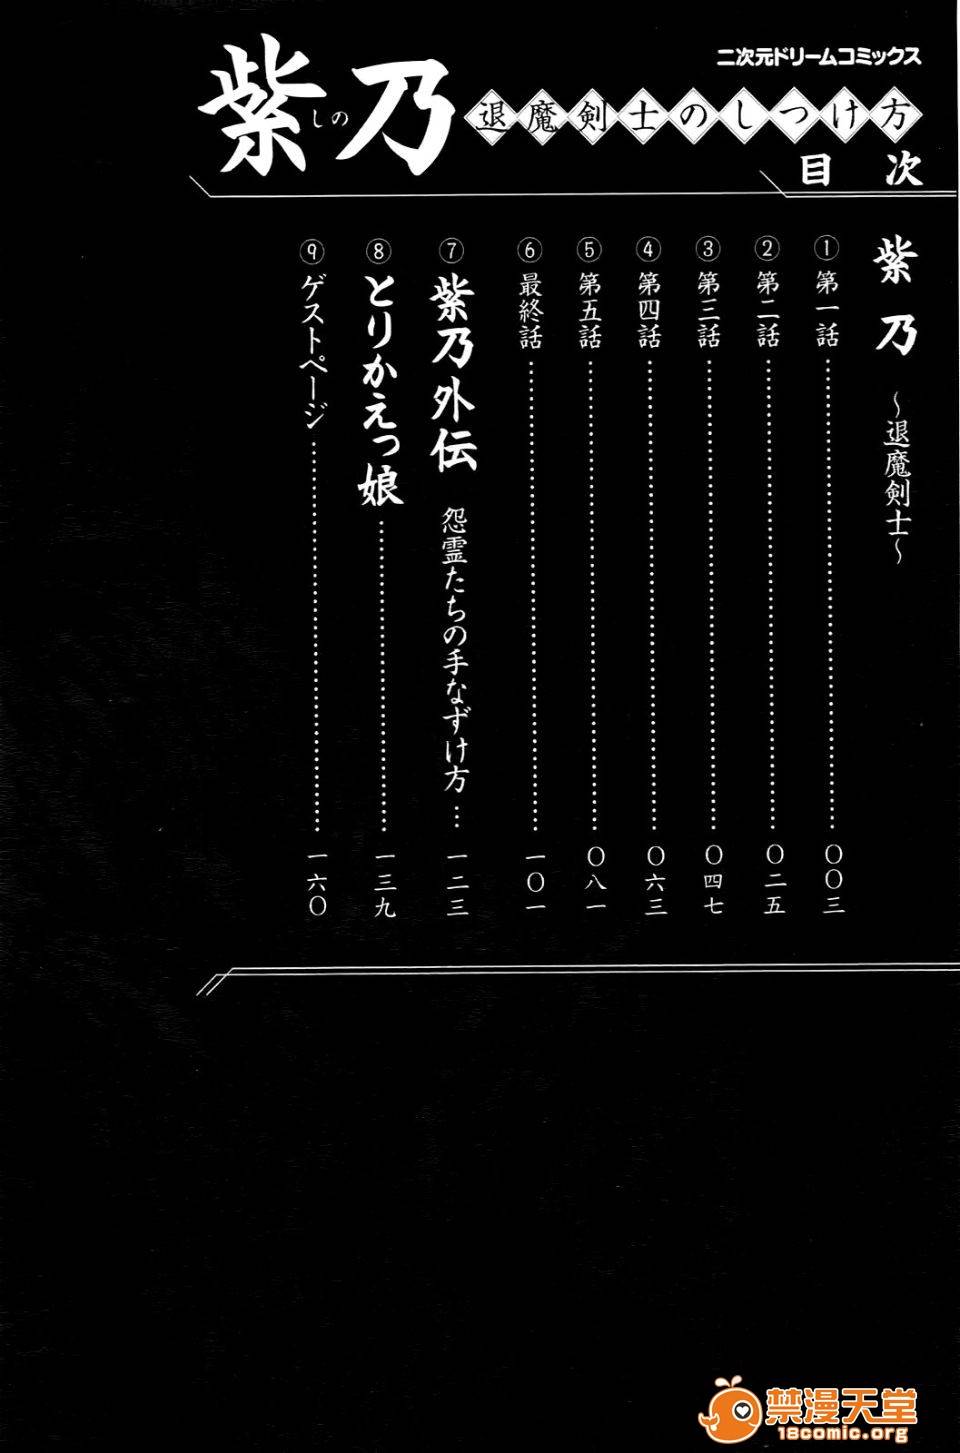 二次元ドリームコミックス
紫乃
しの
退魔剣士のしつけ方
目次
紫乃 ～退魔剣士～
① 第一話……〇〇三
② 第二話……〇二五
③ 第三話……〇四七
④ 第四話……〇六三
⑤ 第五話……〇八一
⑥ 最終話……一〇一
⑦ 紫乃外伝 怨霊たちの手なずけ方…一二三
⑧ とりかえっ娘……一三九
⑨ ゲストページ……一六〇
禁漫天堂
18comic.org